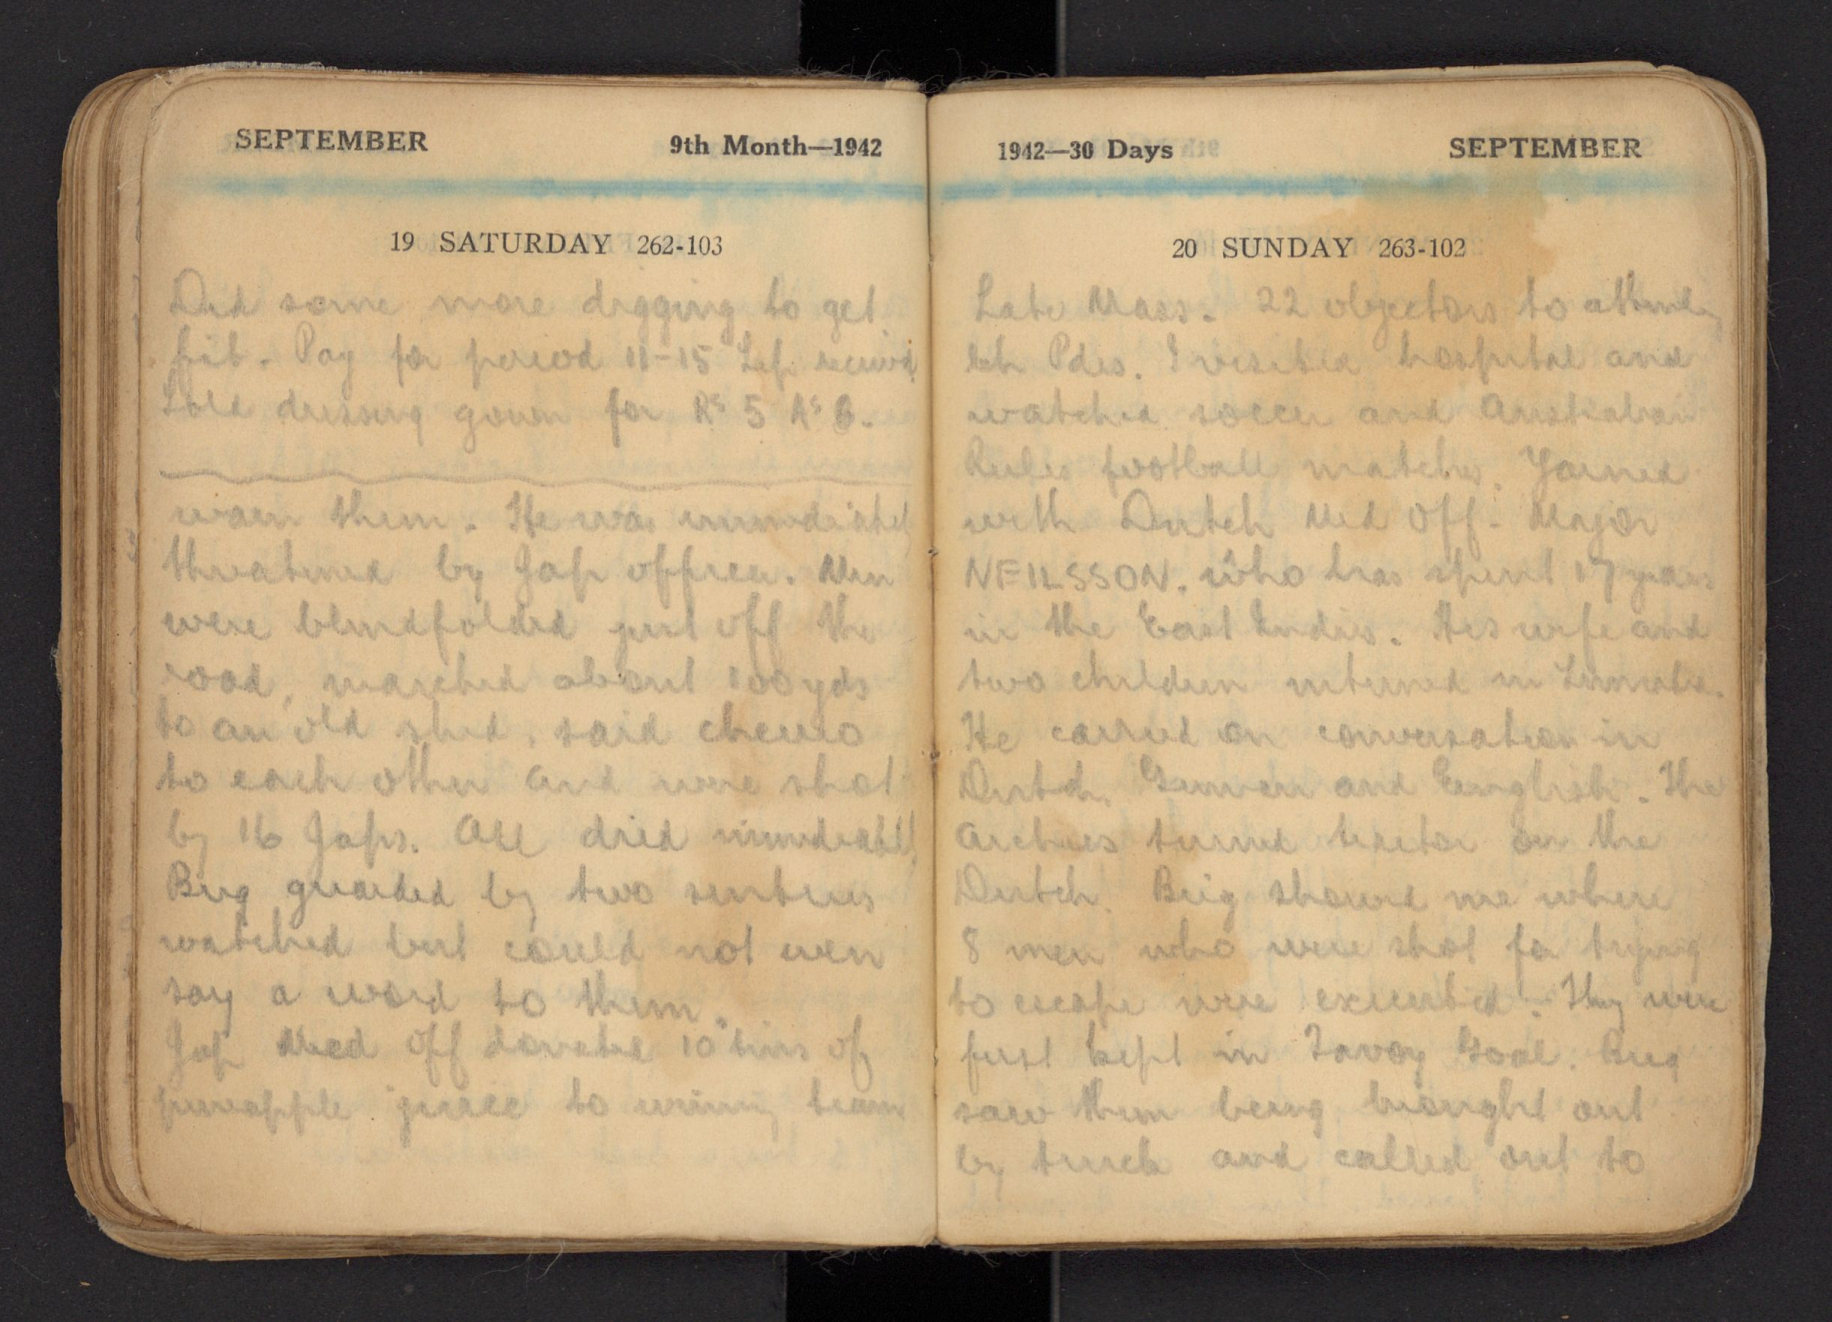 SEPTEMBER 9th Month—1942
19 SATURDAY 262-103
Did some more digging to get
fit. Pay for period 11-15 Sep. received
Sold dressing gown for Rs 5 As 8.
warn them. He was immediately
threatened by Jap officer. Men
were blindfolded just off the
road, marched about 100 yds
to an old shed, said cheerio
to each other and were shot
by 16 Japs. All died immediately
Brig guarded by two sentries
watched but could not even
say a word to them.
Jap Med Off donated 10 tins of
pineapple juice to wining team
1942—30 Days SEPTEMBER
20 SUNDAY 263-102
Late Mass. 22 objectors to attending
Ch Pdes. I visited hospital and
watched soccer and Australian
Rules football matches. Yarned
with Dutch Med Off. Major
NEILSSON. who has spent 17 years
in the East Indies. His wife and
two children interned in Sumatra.
He carried on conversation in
Dutch, German and English. The
Archies turned traitor on the
Dutch. Brig showed me where
8 men who were shot for trying
to escape were executed. They were
first kept in Tavoy Goal. Brig
saw them being brought out
by truck and called out to